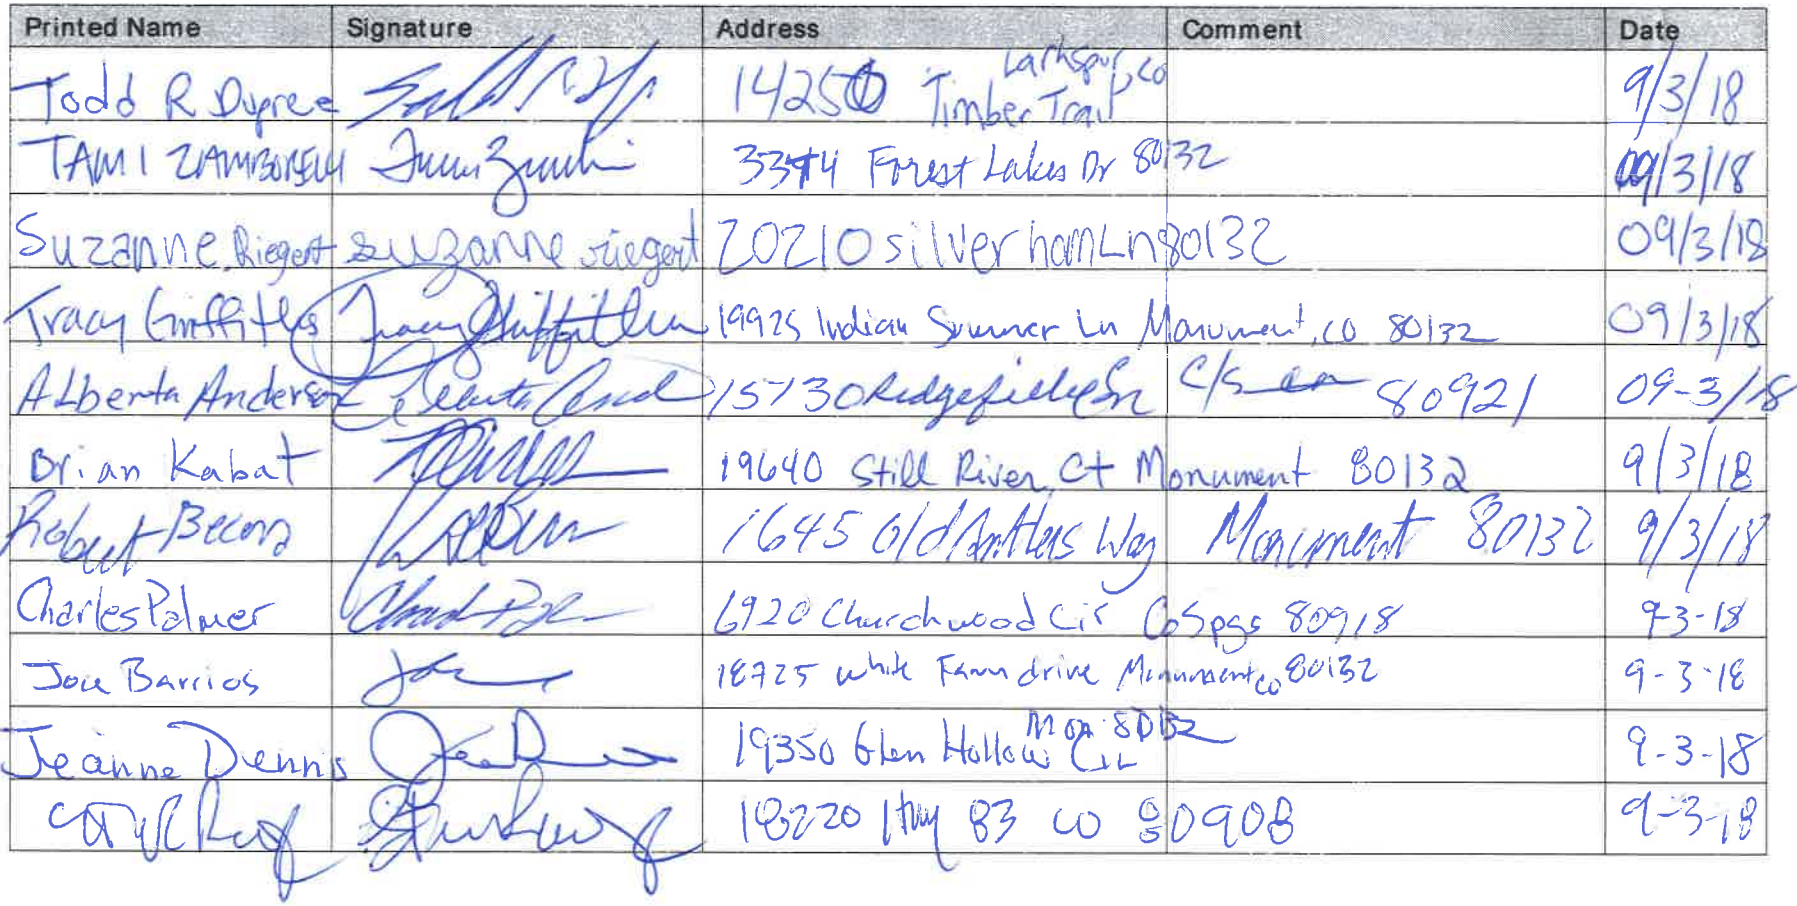 Printed Name Signature Address Comment Date
Todd R Dupree 14250 Timber Trail Larkspur, CO 9/3/18
TAMI ZAMBORELLI 3374 Forest Lakes Dr 80132 09/3/18
Suzanne Riegert suzanne riegert 20210 silver horn Ln 80132 09/3/18
Tracy Griffiths Tracy Griffiths 19925 Indian Summer Ln Monument, CO 80132 09/3/18
Alberta Anderson 15730 Ridgefield Ln C/S 80921 09-3/18
Brian Kabat 19640 Still River Ct Monument 80132 9/3/18
Robert 1645 Old Antlers Way Monument 80132 9/3/18
Charles Palmer 6920 Churchwood Cir CoSpgs 80918 9-3-18
Joe Barrios 18725 White Fawn drive Monument co 80132 9-3-18
Jeanne Dennis 19350 Glen Hollow Cir Mon 80132 9-3-18
18220 Hwy 83 CO 80908 9-3-18